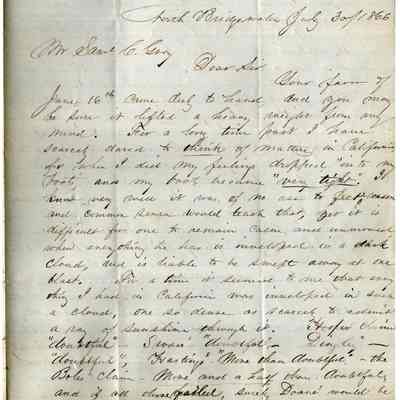 North Bridgewater July 30th 1866
Mr Saml C. Gray
Dear Sir
Your favor of
June 16th came duly to hand and you may
be sure it lifted a heavy weight from my
mind. For a long time past I have
scarcely dared to think of matters in California
for when I did my feelings dropped into my
boots, and my boots became "very tight". I
knew very well it was of no use to fret, reason
and common sense would teach that, yet it is
difficult for one to remain calm and unmoved
when everything he has is enveloped in a dark
cloud, and is liable to be swept away at one
blast. For a time it seemed to me that every
thing I had in California was enveloped in such
a cloud, one so dense as scarcely to admit
a ray of sunshine through it. Hooper Claim
"doubtful" "doubtful" Dingle —
"doubtful", "More than doubtful" - the
Boles Claim More and a half than doubtful,
and if all these failed, surely Doane would be